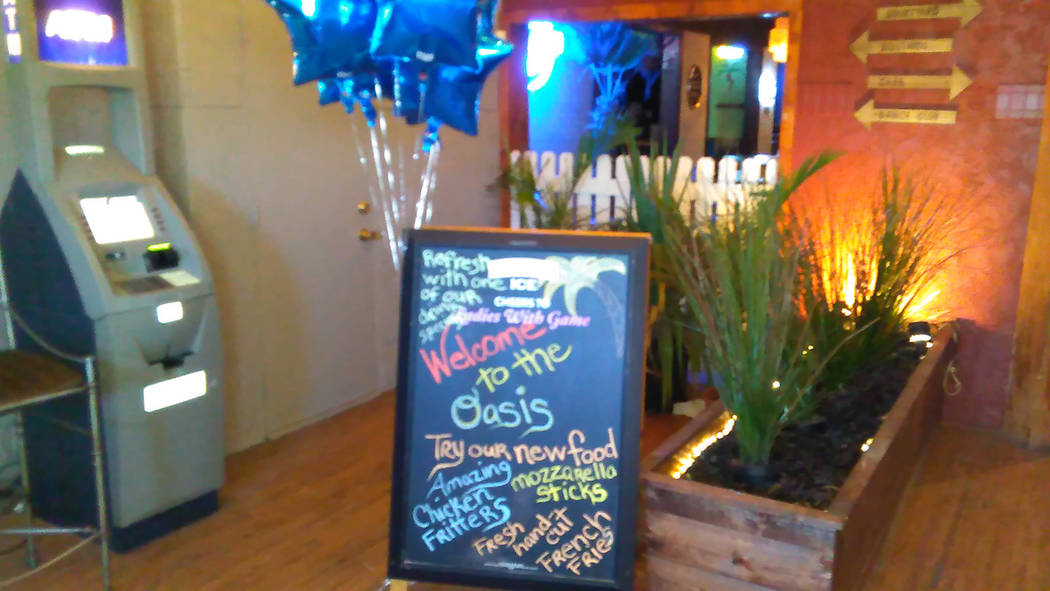 ATM
COURTYARD
BAR
Refresh
with one
of our
drink
ICE
CHEERS TO
Ladies With Game
Welcome
to the
Oasis
Try our new food
Amazing
Chicken
Fritters
mozzarella
sticks
Fresh
hand-cut
French
Fries